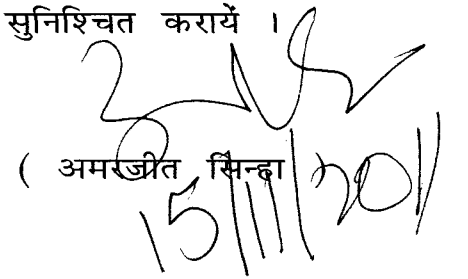 सुनिश्चित करायें ।
( अमरजीत सिन्हा )
15/11/2011